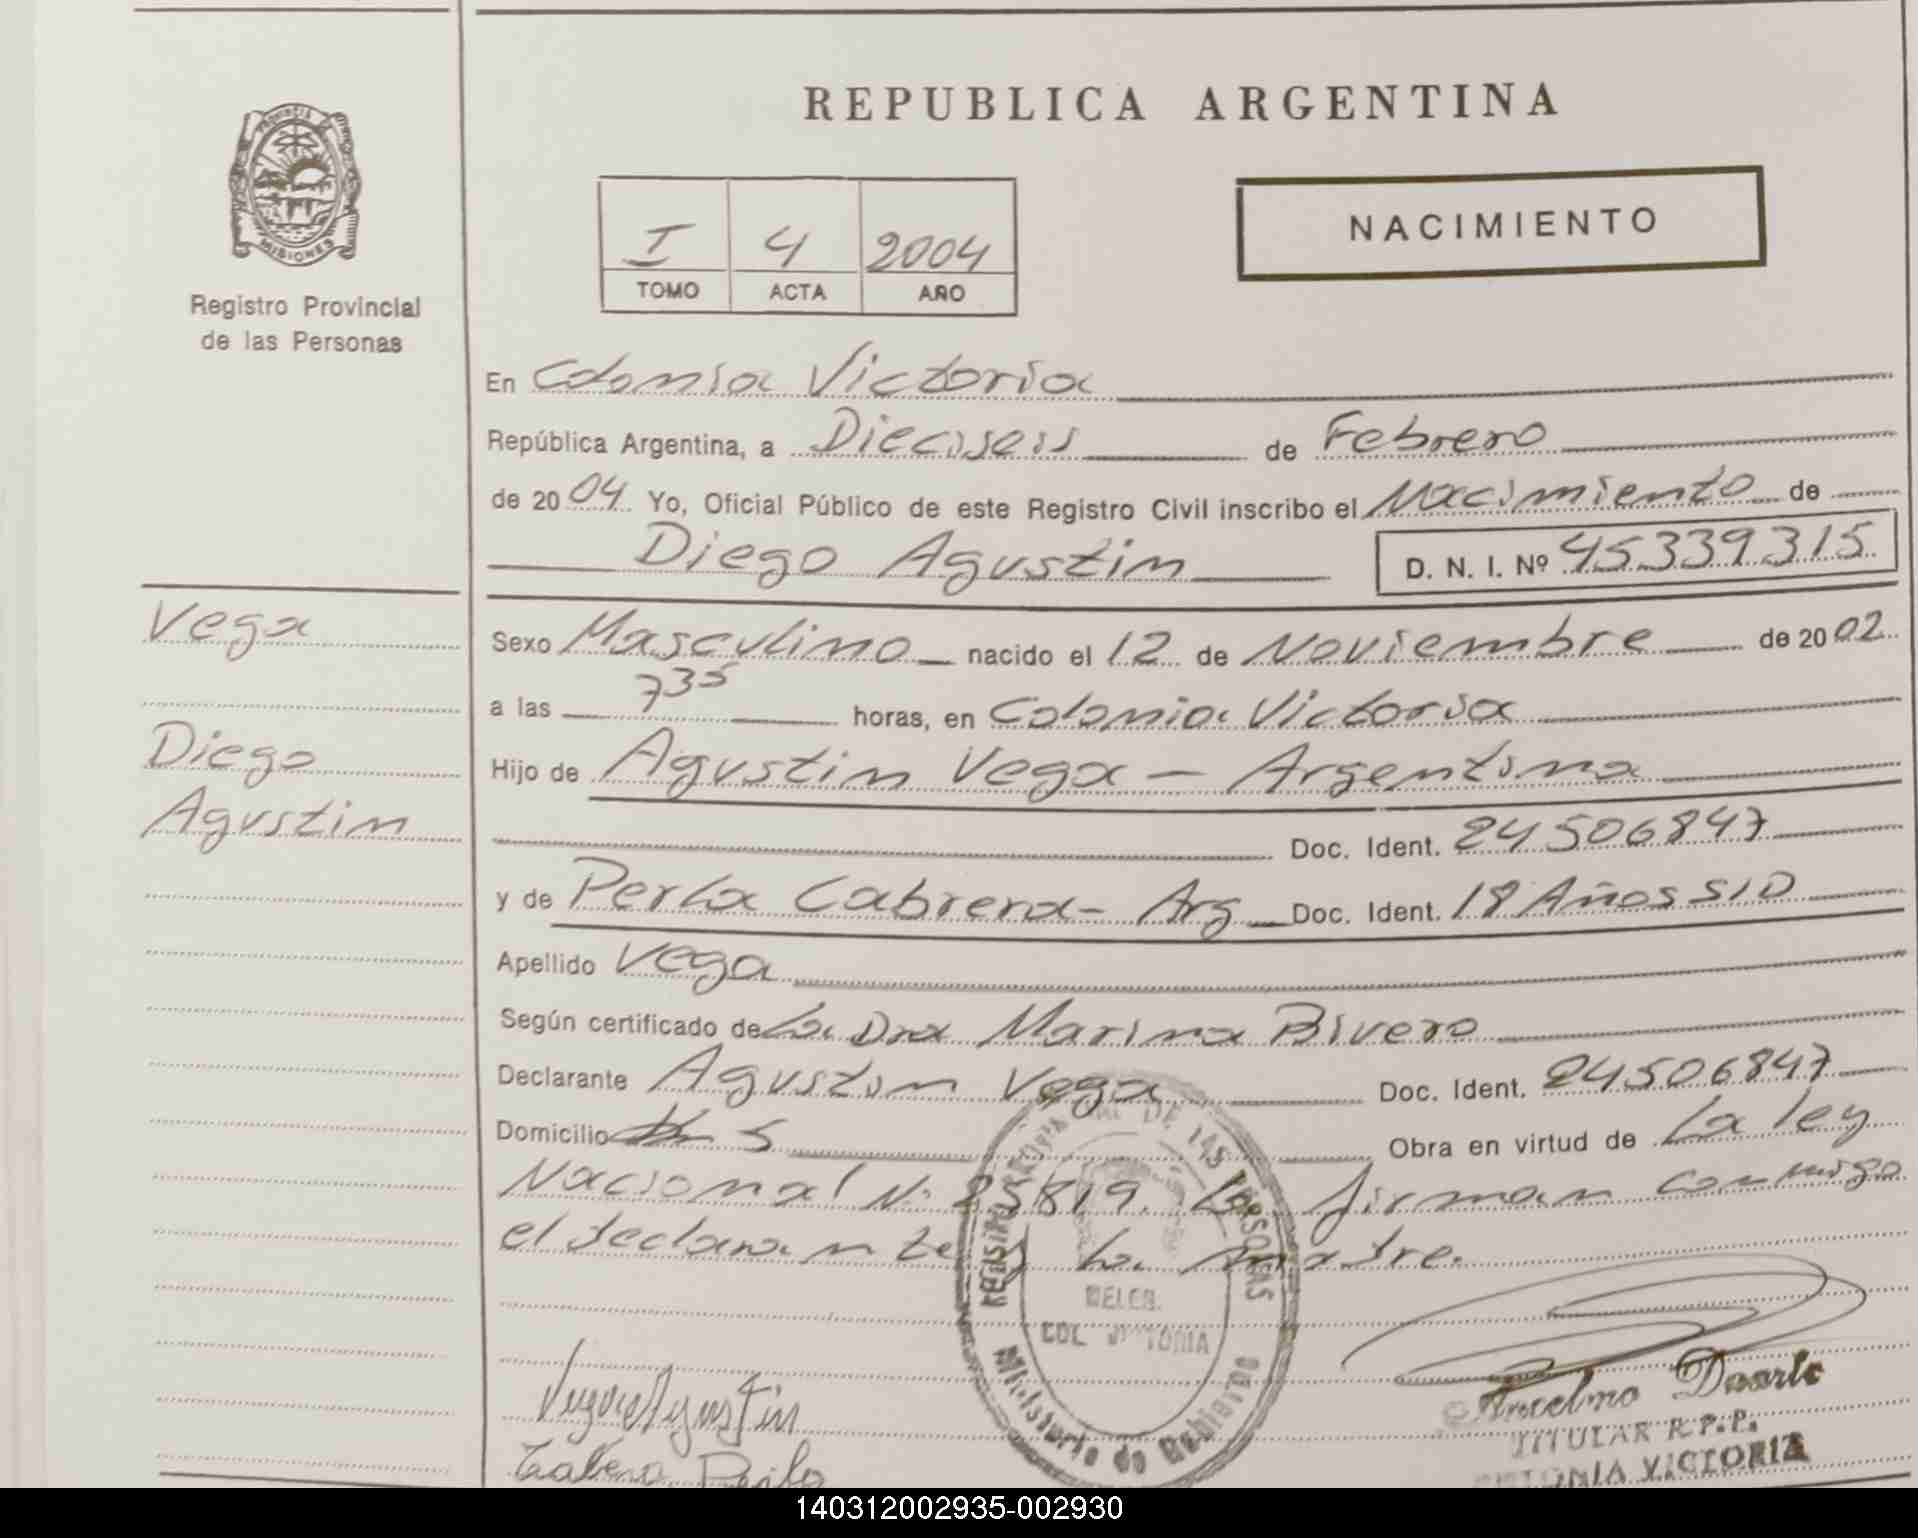 REPUBLICA ARGENTINA
PROVINCIA DE MISIONES
Registro Provincial
de las Personas
I 4 2004
TOMO ACTA AÑO
NACIMIENTO
En Colonia Victoria
República Argentina, a Dieciseis de Febrero
de 2004 Yo, Oficial Público de este Registro Civil inscribo el Nacimiento de
Diego Agustin D. N. I. Nº 45339315
Vega
Diego
Agustin
Sexo Masculino nacido el 12 de Noviembre de 2002
a las 7 35 horas, en Colonia Victoria
Hijo de Agustin Vega - Argentina
Doc. Ident. 24506847
y de Perla Cabrera - Arg Doc. Ident. 18 Años S/D
Apellido Vega
Según certificado de La Dra Marina Rivero
Declarante Agustin Vega Doc. Ident. 24506847
Domicilio Obra en virtud de La ley
Nacional Nº 25819. firman conmigo
el declarante y la madre.
DE LAS PERSONAS
DELEG.
COL VICTORIA
Ministerio de Gobierno
Vega Agustin
Cabrera Perla
Anselmo Duarte
TITULAR R.P.P.
COLONIA VICTORIA
140312002935-002930